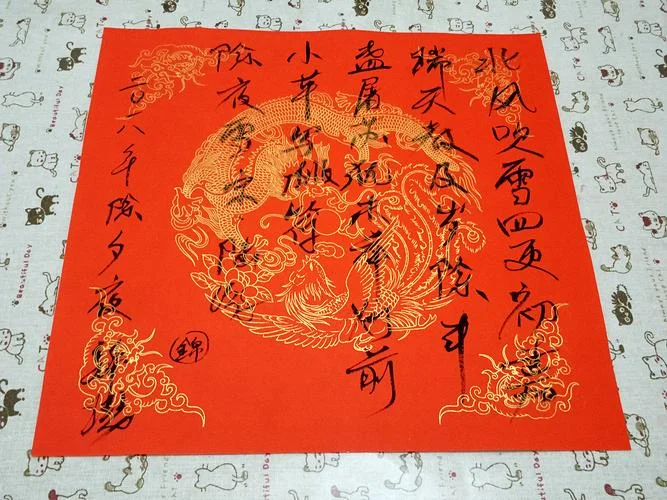 北风吹雪四更初嘉
瑞天教及岁除半
盏屠苏犹未举灯前
小草写桃符
除夜雪宋·陆游
二〇一八年除夕夜
Beautiful Day